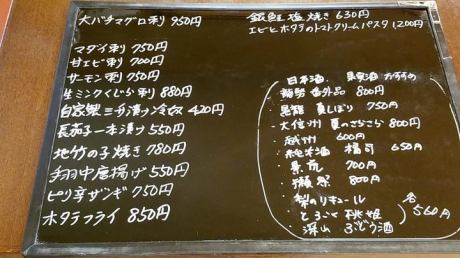 大バチマグロ刺 950円
マダイ刺 750円
甘エビ刺 700円
サーモン刺 750円
生ミンクくじら刺 880円
自家製三升漬け冷奴 420円
長茄子一本漬け 550円
地竹の子焼き 780円
手羽中唐揚げ 550円
ピリ辛ザンギ 750円
ホタテフライ 850円
銀鮭塩焼き 630円
エビとホタテのトマトクリームパスタ 1,200円
日本酒 果実酒 おすすめ
番外品 800円
夏しぼり 750円
・大信州 夏のさらさら 800円
・越州 600円
・純米酒 福司 650円
・景虎 700円
・獺祭 800円
・梨のリキュール
・とろこく 桃姫
・深山 ぶどう酒
各560円